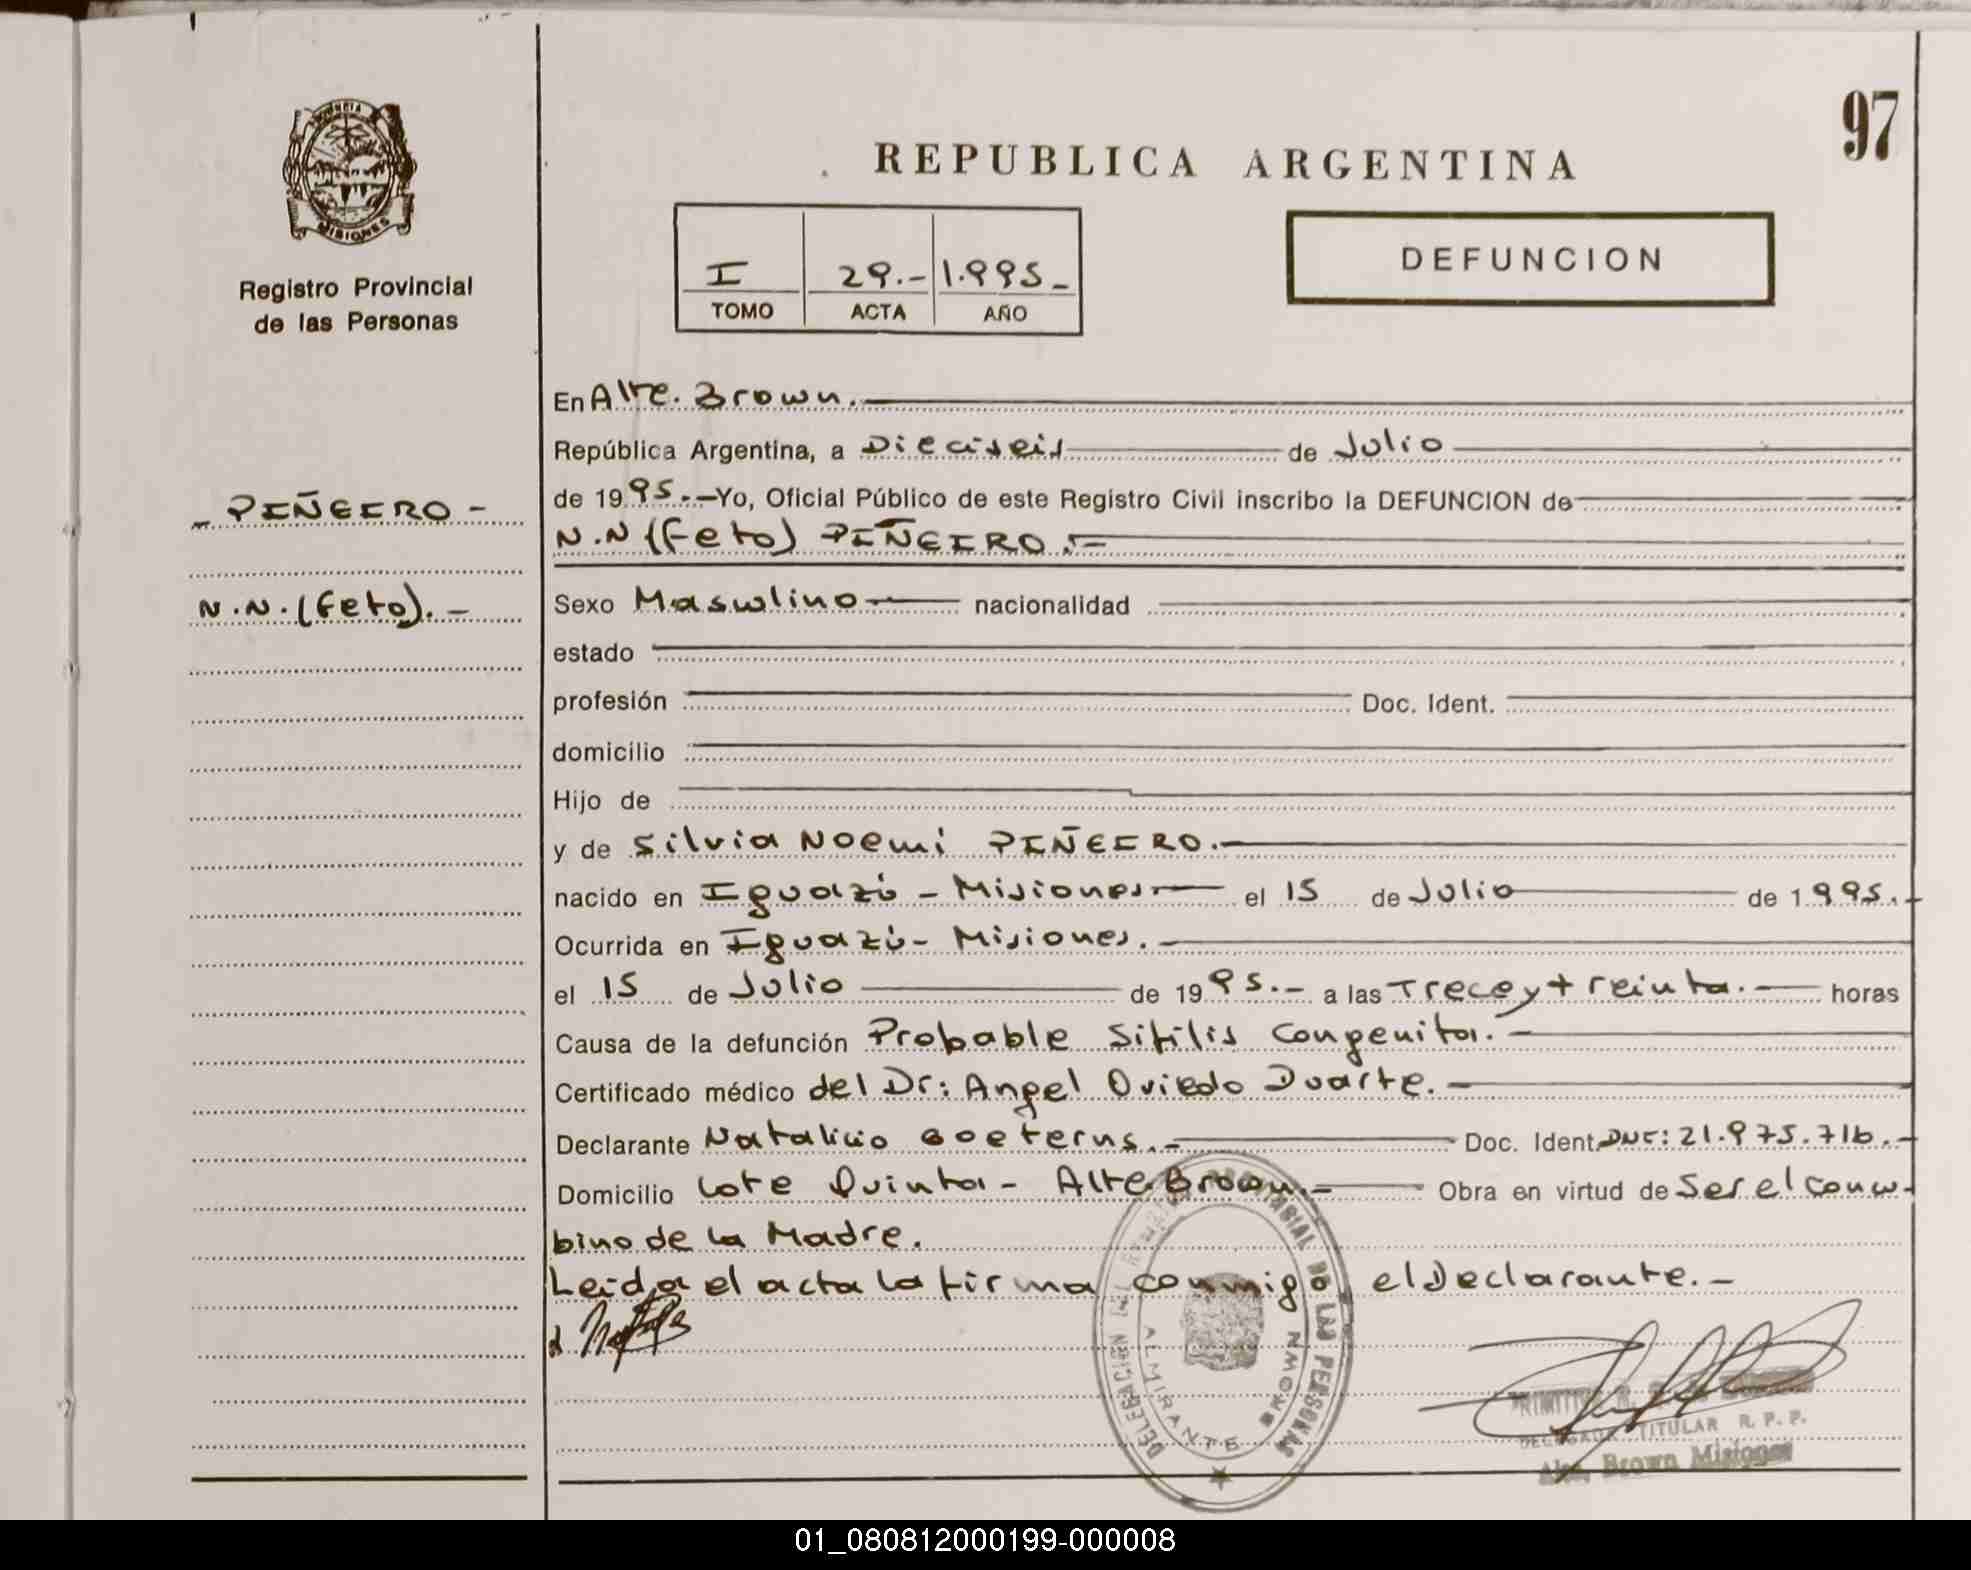 97
REPUBLICA ARGENTINA
PROVINCIA
MISIONES
Registro Provincial
de las Personas
DEFUNCION
I 29.- 1.995_
TOMO ACTA AÑO
_ PIÑEIRO -
N.N. (Feto). -
En Alte. Brown.
República Argentina, a Dieciseis de Julio
de 1995.- Yo, Oficial Público de este Registro Civil inscribo la DEFUNCION de
N.N (Feto) PIÑEIRO.-
Sexo Masculino nacionalidad
estado
profesión Doc. Ident.
domicilio
Hijo de
y de Silvia Noemí PIÑEIRO.-
nacido en Iguazú - Misiones el 15 de Julio de 1995.-
Ocurrida en Iguazú - Misiones.-
el 15 de Julio de 1995.- a las Trece y treinta.- horas
Causa de la defunción Probable Sifilis Congenita.-
Certificado médico del Dr: Angel Oviedo Duarte.-
Declarante Natalicio Goeterns.- Doc. Ident. DNI: 21.975.716.-
Domicilio Lote Quinta - Alte. Brown.- Obra en virtud de Ser el concu-
bino de la Madre.
Leida el acta la firma conmigo el Declarante.-
DELEGACION DEL LAS PERSONAS
ALMIRANTE BROWN
TITULAR R. P. P.
Alte. Brown Misiones
01_080812000199-000008